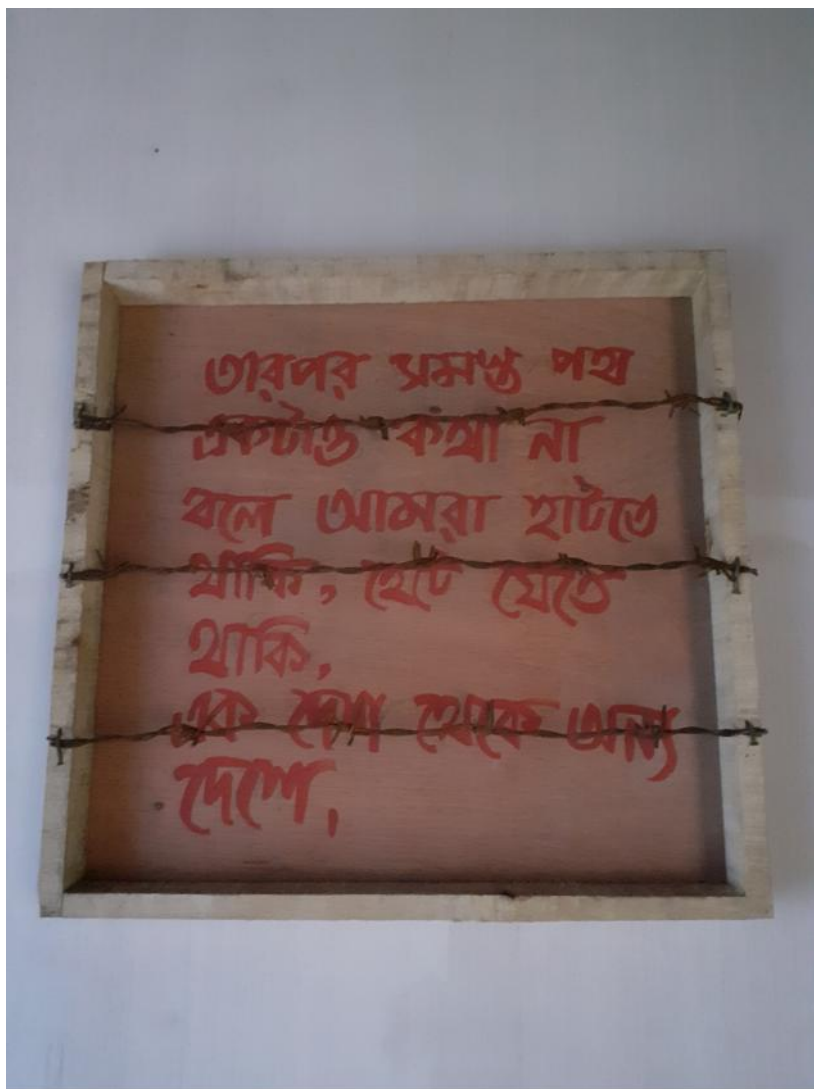 তারপর সমস্ত পথ
একটাও কথা না
বলে আমরা হাটতে
থাকি, হেটে যেতে
থাকি,
এক দেশ থেকে অন্য
দেশে,